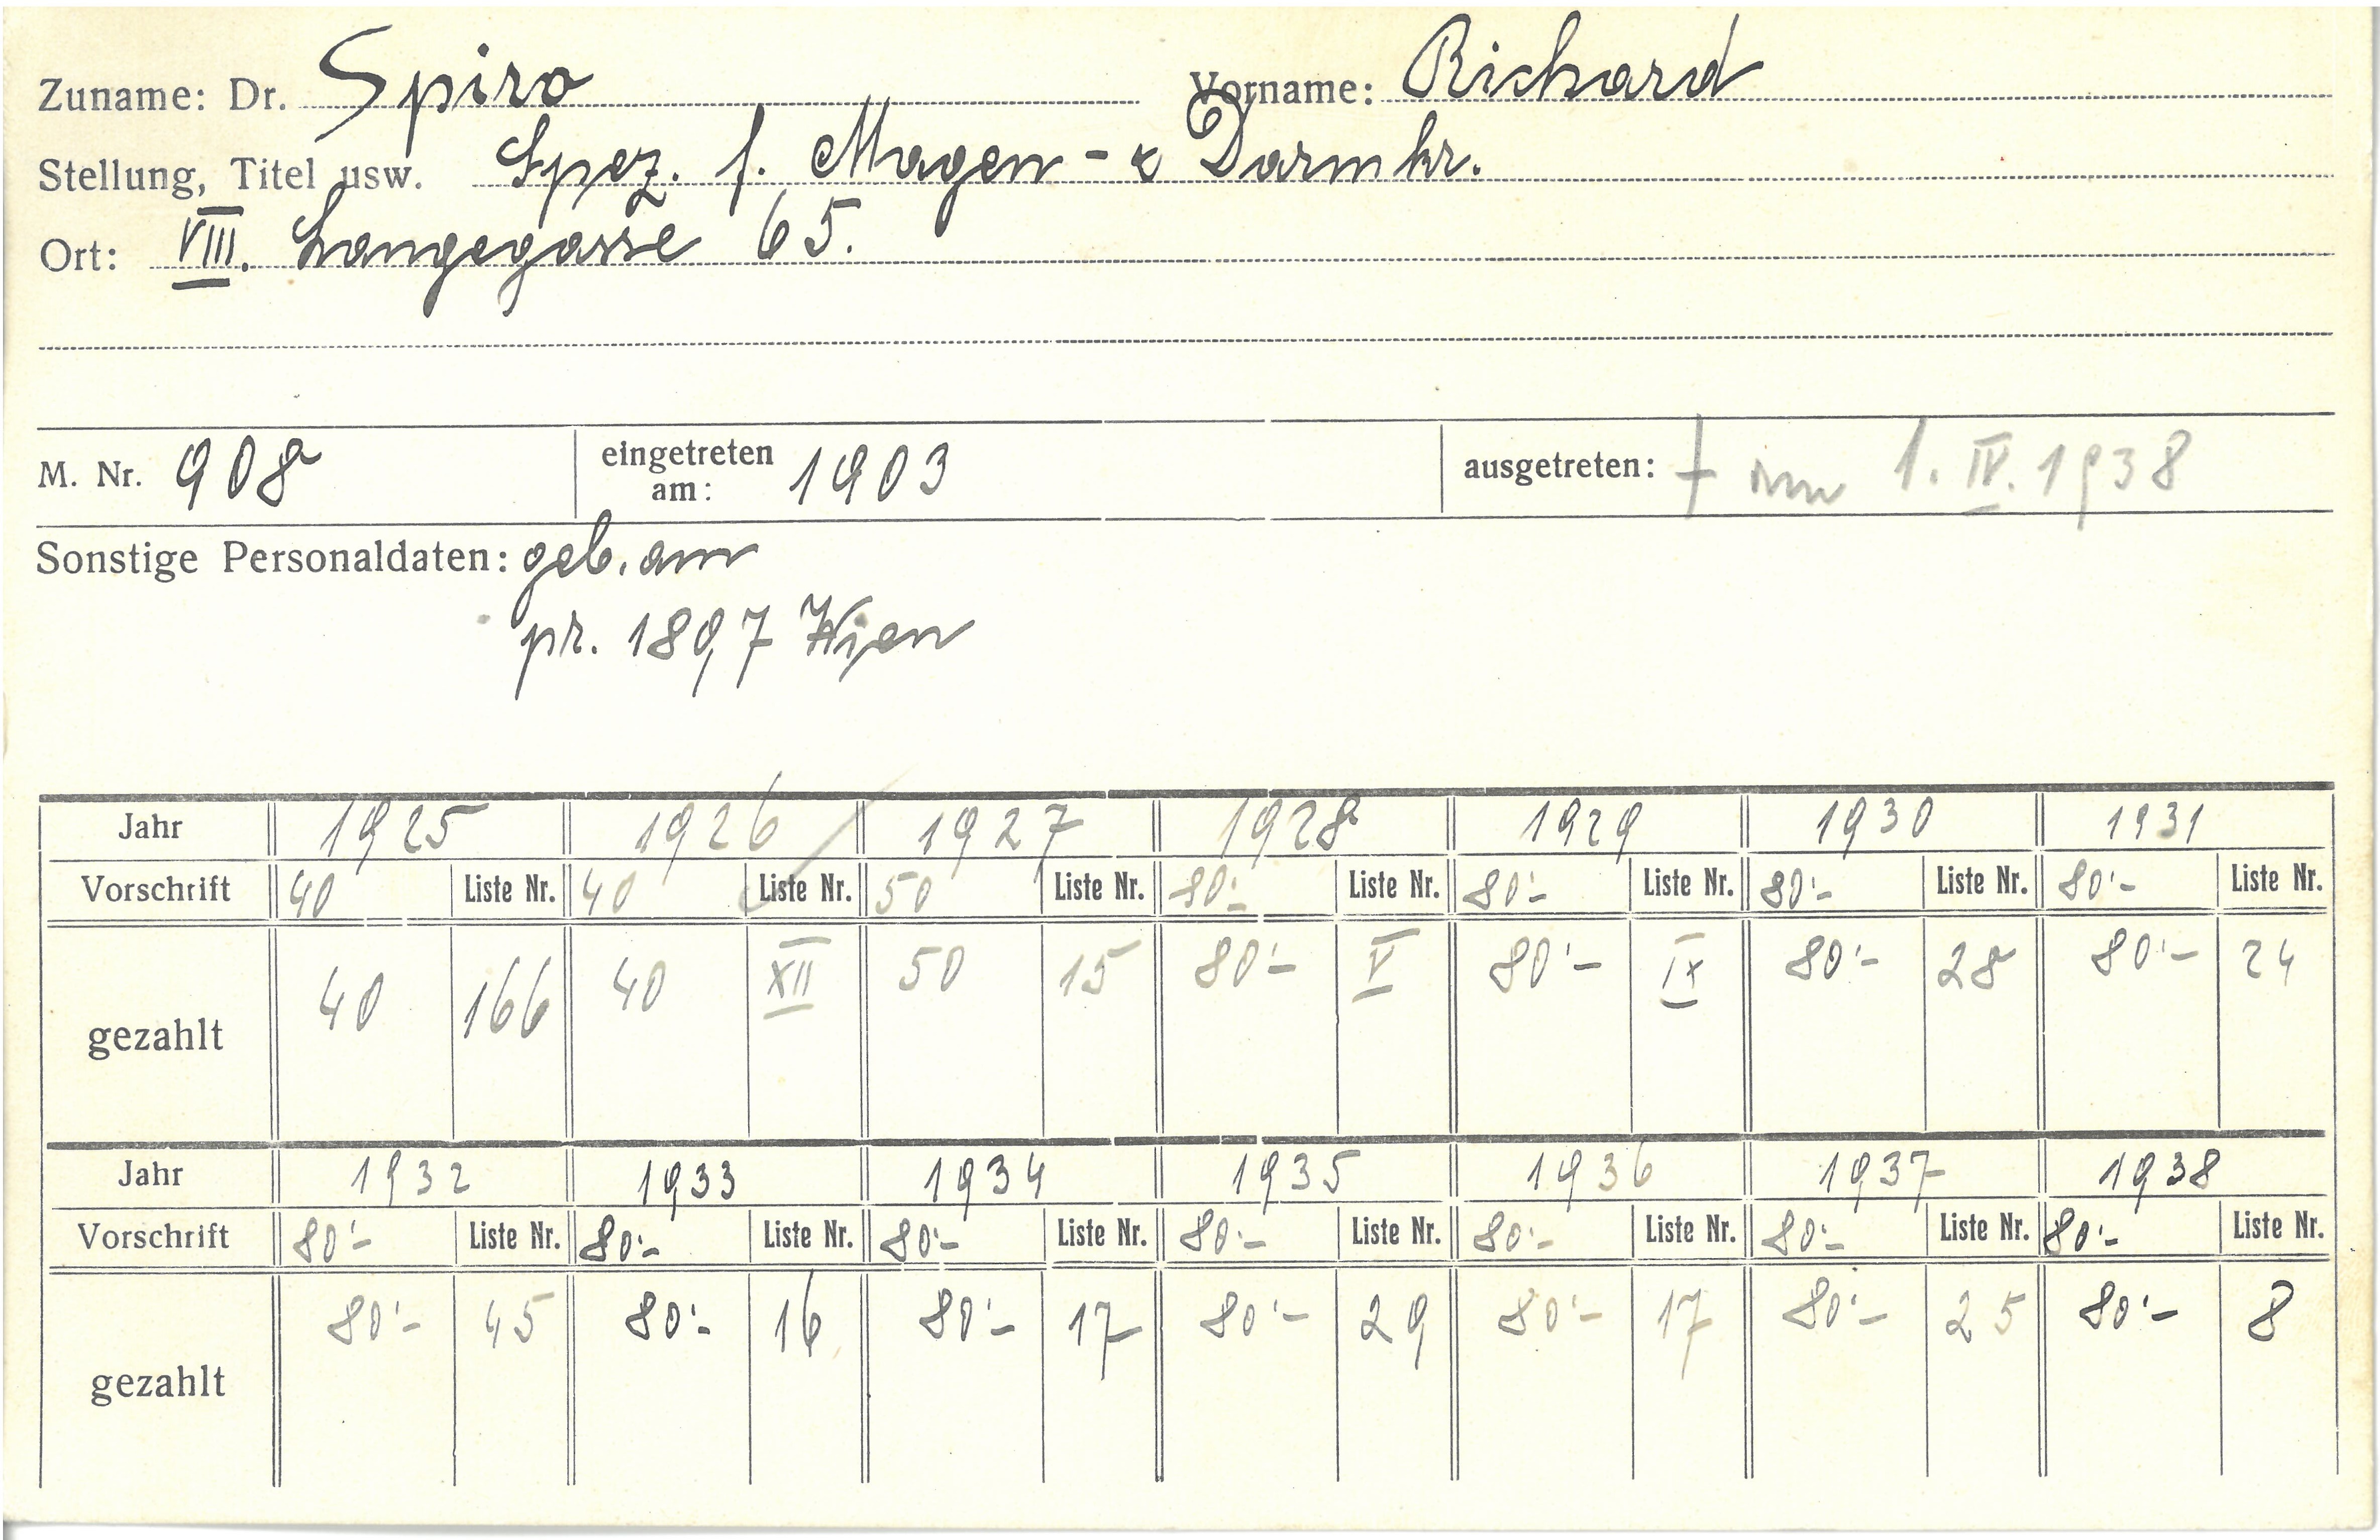 Zuname: Dr. Spiro Vorname: Richard
Stellung, Titel usw. Spez. f. Magen- & Darmkr.
Ort: VIII. Langegasse 65.
M. Nr. 908 eingetreten am: 1903 ausgetreten: † im 1. IV. 1938
Sonstige Personaldaten: geb. am
pr. 1897 Wien
Jahr 1925 1926 1927 1928 1929 1930 1931
Vorschrift 40 Liste Nr. 40 Liste Nr. 50 Liste Nr. 80'- Liste Nr. 80'- Liste Nr. 80'- Liste Nr. 80'- Liste Nr.
gezahlt 40 166 40 XII 50 15 80'- V 80'- IX 80'- 28 80'- 24
Jahr 1932 1933 1934 1935 1936 1937 1938
Vorschrift 80'- Liste Nr. 80'- Liste Nr. 80'- Liste Nr. 80'- Liste Nr. 80'- Liste Nr. 80'- Liste Nr. 80'- Liste Nr.
gezahlt 80'- 45 80'- 16 80'- 17 80'- 29 80'- 17 80'- 25 80'- 8